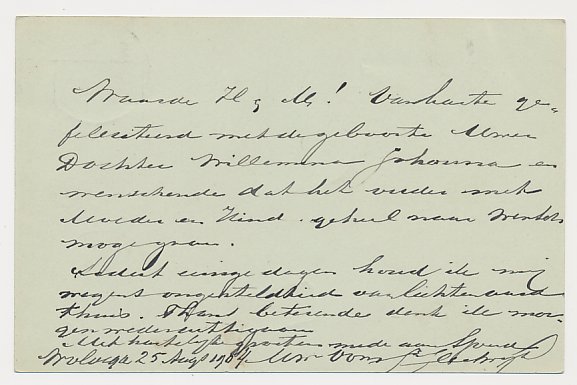 Waarde H & M! Van harte ge-
feliciteerd met de geboorte Uwer
Dochter Willemina Johanna en
wenschende dat het verder met
Moeder en Kind geheel naar wensch
moge gaan.
Sedert eenige dagen houd ik mij
wegens ongesteldheid van lichten aard
thuis. Thans beterende denk ik mor-
gen weder uit te gaan
Met hartelijke groeten mede aan
Wolvega 25 Aug 1904 Uw Oom